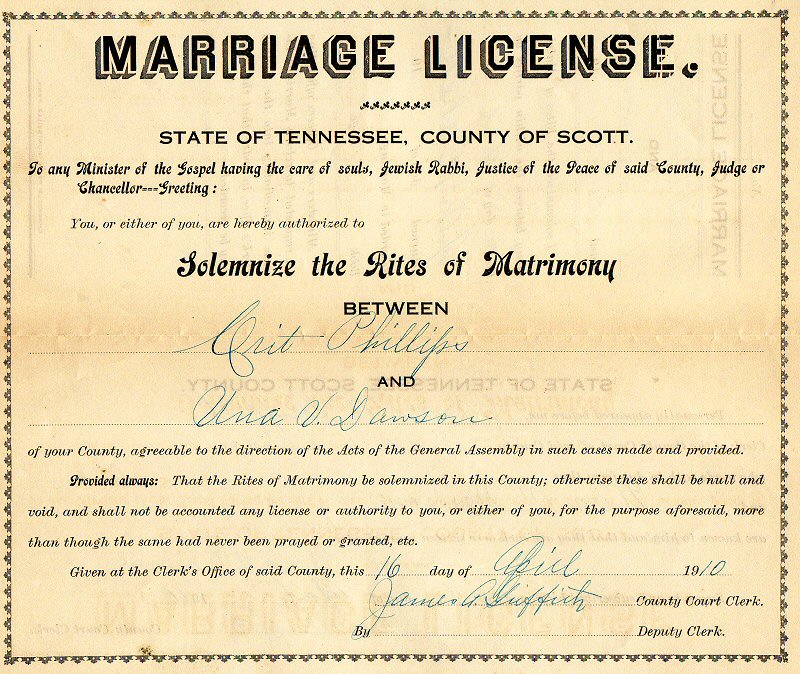 MARRIAGE LICENSE.
STATE OF TENNESSEE, COUNTY OF SCOTT.
To any Minister of the Gospel having the care of souls, Jewish Rabbi, Justice of the Peace of said County, Judge or
Chancellor===Greeting:
You, or either of you, are hereby authorized to
Solemnize the Rites of Matrimony
BETWEEN
Crit Phillips
AND
Una V. Dawson
of your County, agreeable to the direction of the Acts of the General Assembly in such cases made and provided.
Provided always: That the Rites of Matrimony be solemnized in this County; otherwise these shall be null and
void, and shall not be accounted any license or authority to you, or either of you, for the purpose aforesaid, more
than though the same had never been prayed or granted, etc.
Given at the Clerk's Office of said County, this 16 day of April 1910
James A. Griffith County Court Clerk.
By Deputy Clerk.